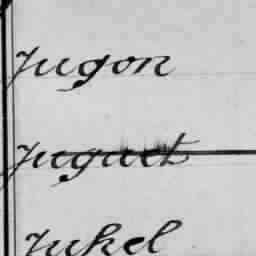 Jugon
Juguet
Jukel